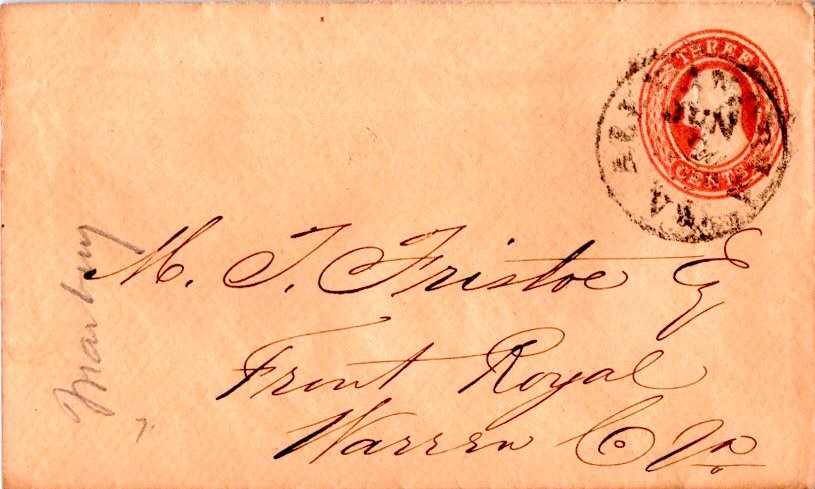 THREE
CENTS
VA
M. T. Fristoe Esq
Front Royal
Warren Co Va
Marbury
7